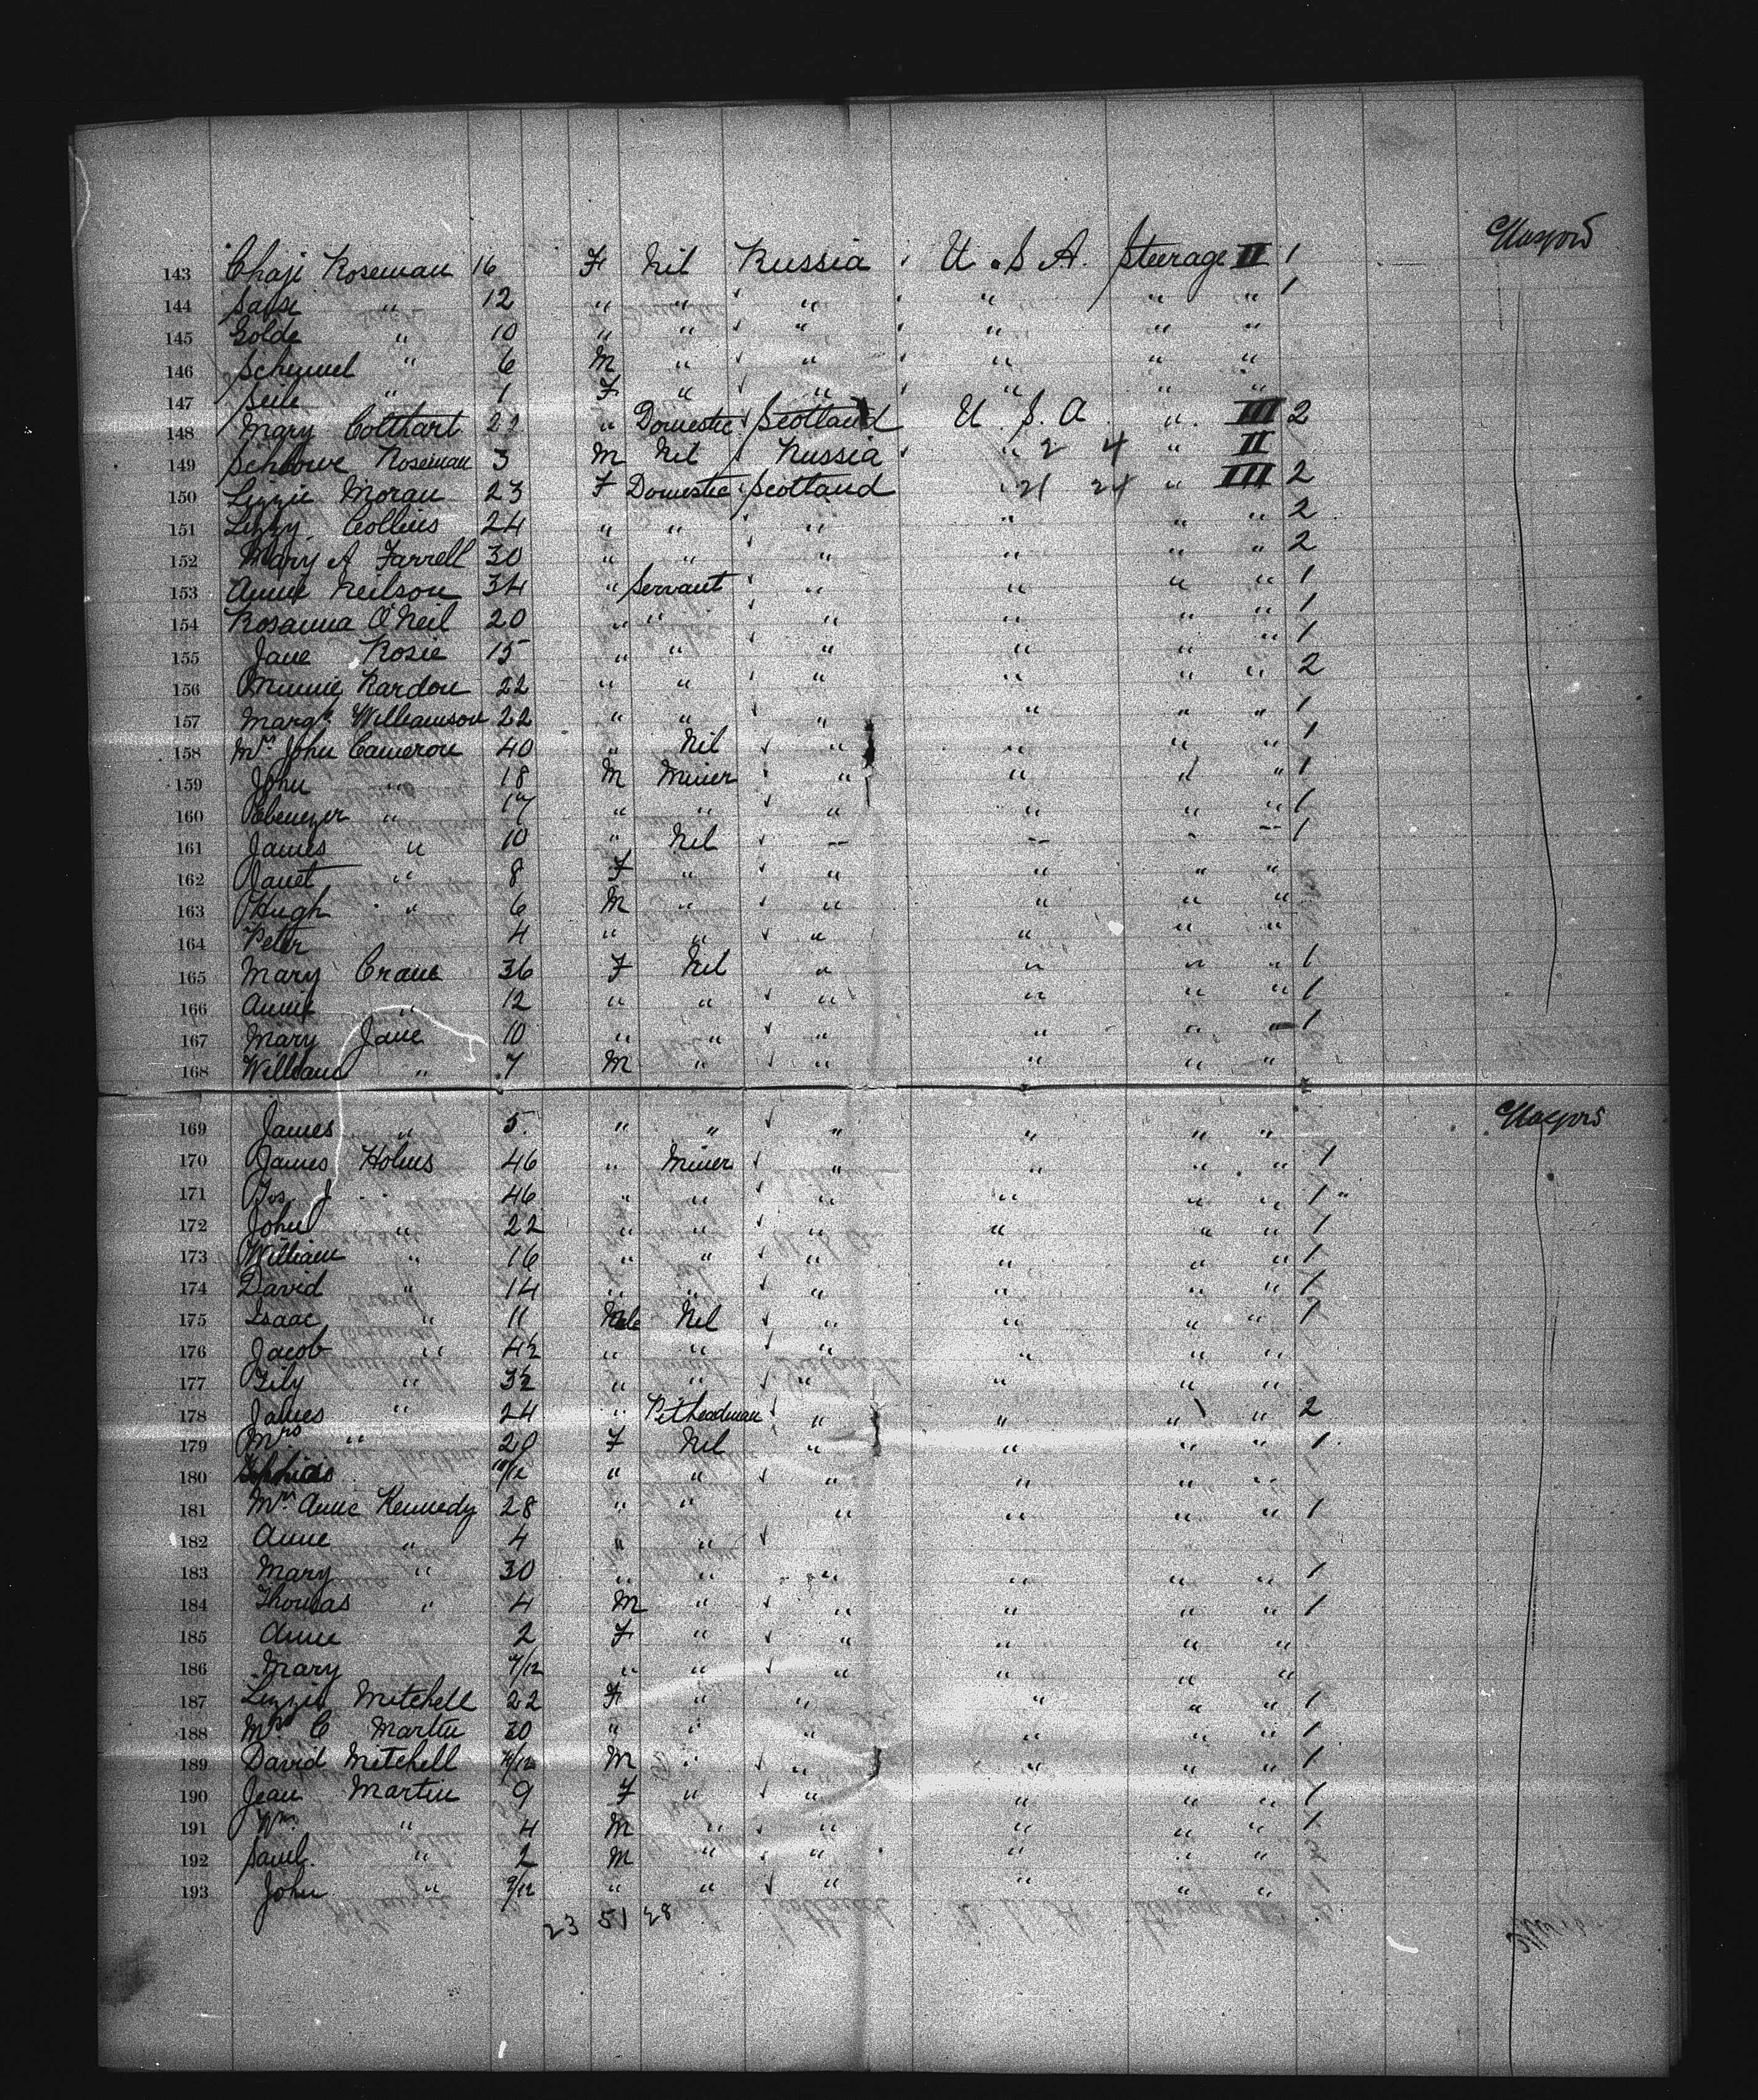 Glasgow
143 Chaji Roseman 16 F Nil Russia U.S.A. Steerage II 1
144 " 12 " " " " " " 1
145 Golde " 10 " " " " " "
146 Schmuel " 6 M " " " " "
147 " 1 F " " " " "
148 Mary Colthart 22 " Domestic Scotland U.S.A " III 2
149 Roseman 3 M Nil Russia " " II
150 Lizzie Moran 23 F Domestic Scotland " " III 2
151 Lizzy Collins 24 " " " " " " 2
152 Mary A Farrell 30 " " " " " " 2
153 Annie Neilson 34 " Servant " " " " 1
154 Rosanna O'Neil 20 " " " " " " 1
155 Jane Rosie 15 " " " " " " 1
156 Minnie 22 " " " " " " 2
157 Margt. Williamson 22 " " " " " " 1
158 Mrs. John Cameron 40 " Nil " " " " 1
159 John " 18 M Miner " " " " 1
160 Ebenezer " 17 " " " " " " 1
161 James " 10 " Nil " " " " 1
162 Janet " 8 F " " " " "
163 Hugh " 6 M " " " " "
164 Peter 4 " " " " " "
165 Mary Crane 36 F Nil " " " " 1
166 Annie " 12 " " " " " " 1
167 Mary Jane 10 " " " " " " 1
168 William " 7 M " " " " "
Glasgow
169 James " 5 " " " " " "
170 James Holmes 46 " Miner " " " " 1
171 46 " " " " " " 1
172 John " 22 " " " " " " 1
173 William " 16 " " " " " " 1
174 David " 14 " " " " " " 1
175 Isaac " 11 Nil " " " " 1
176 Jacob " " " " " " "
177 " " " " " " "
178 James " 24 " Pitheadman " " " " 2
179 Mrs " F Nil " " " " 1
180 " " " " " "
181 Mrs. Anne Kennedy 28 " " " " " " 1
182 Anne " 4 " "
183 Mary " 30 " " " " " " 1
184 Thomas " 4 M " " " " " 1
185 Anne 2 F " " " " "
186 Mary 7/12 " " " " " "
187 Lizzie Mitchell 22 F " " " " " 1
188 Mrs C Martin 30 " " " " " " 1
189 David Mitchell M " " " " " 1
190 Jean Martin 9 F " " " " " 1
191 Wm. " 4 M " " " " " 1
192 Saml. " 2 M " " " " "
193 John " 9/12 " " " " " "
23 51 28